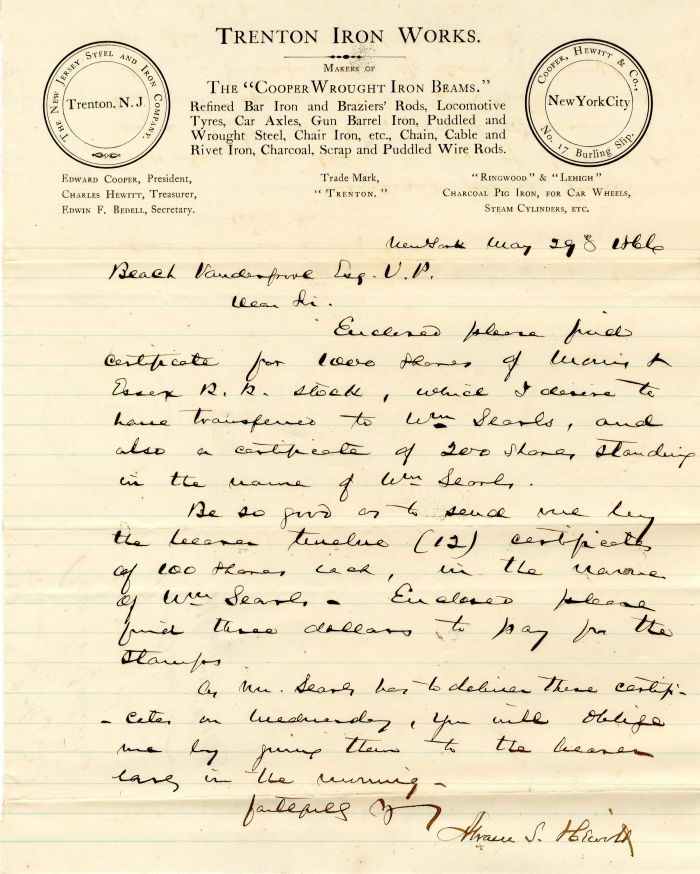 TRENTON IRON WORKS.
MAKERS OF
THE "COOPER WROUGHT IRON BEAMS."
Refined Bar Iron and Braziers' Rods, Locomotive
Tyres, Car Axles, Gun Barrel Iron, Puddled and
Wrought Steel, Chair Iron, etc., Chain, Cable and
Rivet Iron, Charcoal, Scrap and Puddled Wire Rods.
THE NEW JERSEY STEEL AND IRON COMPANY.
Trenton, N. J.
COOPER, HEWITT & CO.,
New York City
No. 17 Burling Slip.
EDWARD COOPER, President,
CHARLES HEWITT, Treasurer,
EDWIN F. BEDELL, Secretary.
Trade Mark,
"TRENTON."
"RINGWOOD" & "LEHIGH"
CHARCOAL PIG IRON, FOR CAR WHEELS,
STEAM CYLINDERS, ETC.
New York May 29th 1866
Beach Vanderpool Esq. V. P.
Dear Sir.
Enclosed please find
certificate for 1000 shares of Morris &
Essex R. R. stock, which I desire to
have transferred to Wm Searls, and
also a certificate of 200 shares standing
in the name of Wm Searls.
Be so good as to send me by
the bearer twelve (12) certificates
of 100 shares each, in the name
of Wm Searls - Enclosed please
find three dollars to pay for the
stamps
As Mr. Searls has to deliver these certifi-
-cates on Wednesday, you will oblige
me by giving them to the bearer
early in the morning -
faithfully Yrs
Abram S. Hewitt